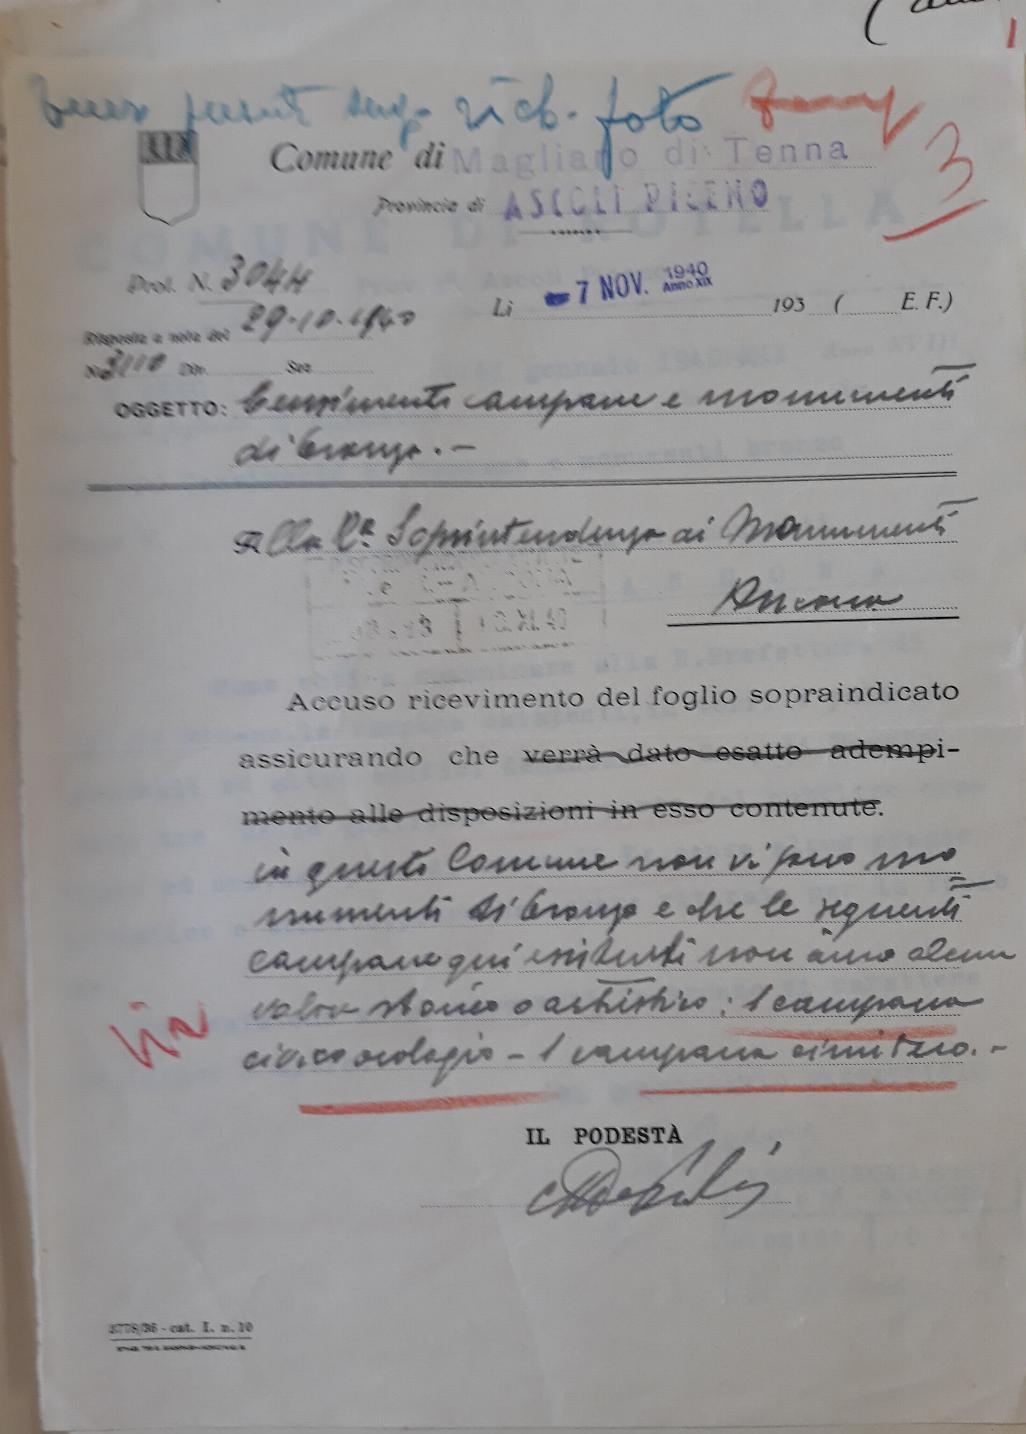 foto
3
Comune di Magliano di Tenna
Provincia di ASCOLI PICENO
Prot. N. 3044
Lì 7 NOV. 1940 Anno XIX 193 ( E. F.)
Risposta a nota del 29-10-1940
N. 3110 Div. Sez.
OGGETTO: Censimento campane e monumenti
di bronzo. -
Alla R. Soprintendenza ai Monumenti
Ancona
Accuso ricevimento del foglio sopraindicato
assicurando che verrà dato esatto adempi-
mento alle disposizioni in esso contenute.
in questo Comune non vi sono mo
numenti di bronzo e che le seguenti
campane qui esistenti non ànno alcun
valore storico o artistico: 1 campana
civico orologio - 1 campana cimitero. -
IL PODESTÀ
3778/36 - cat. I. n. 10